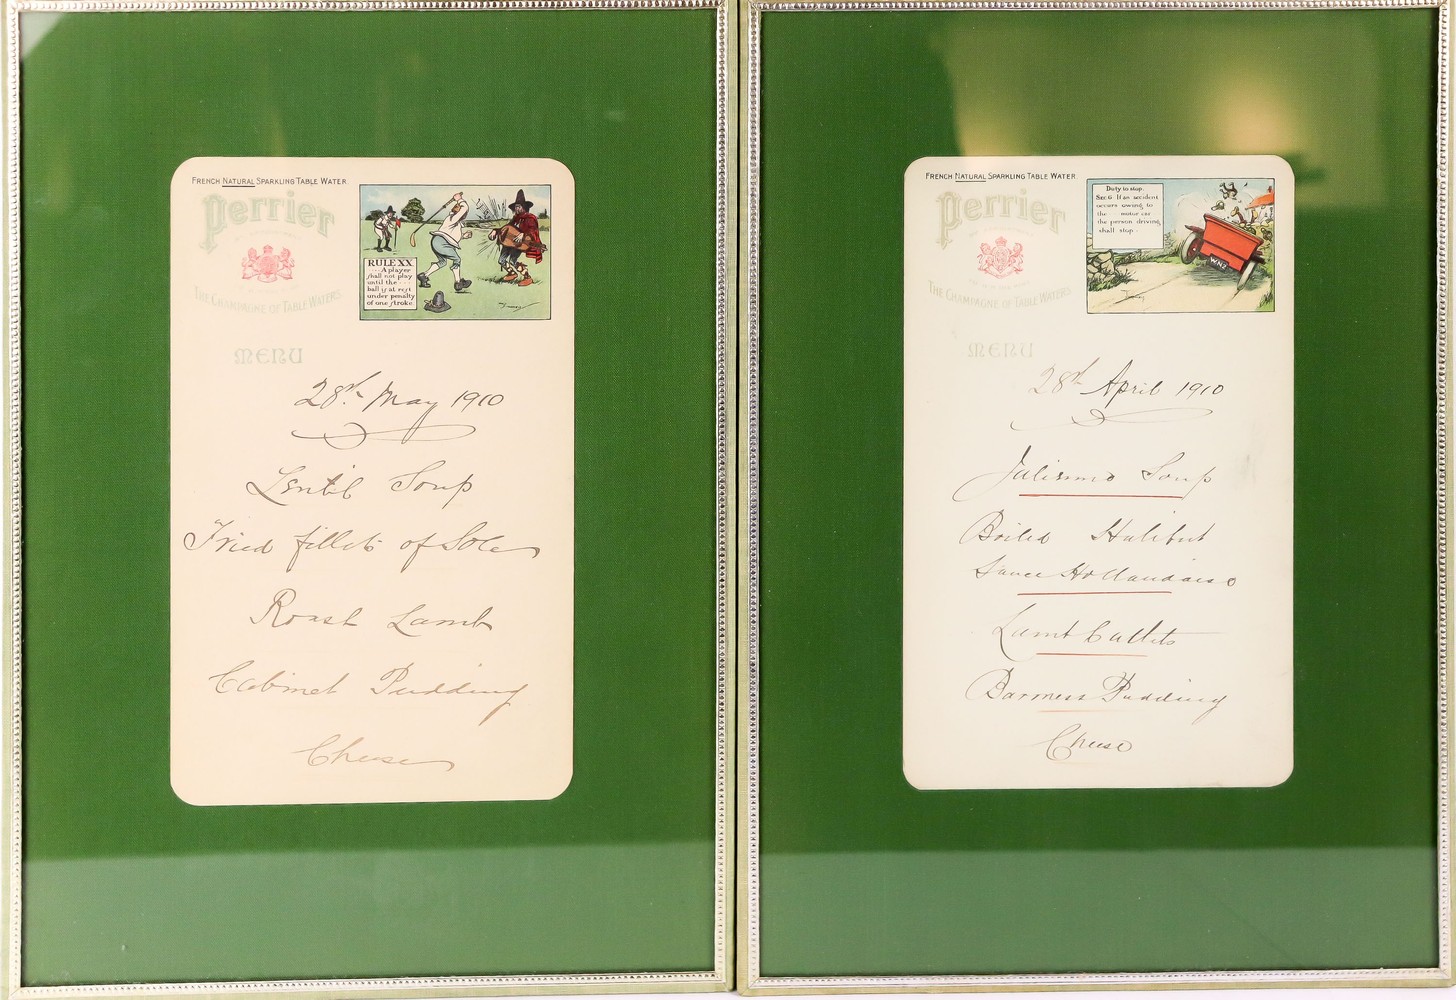 FRENCH NATURAL SPARKLING TABLE WATER.
Perrier
THE CHAMPAGNE OF TABLE WATERS.
RULE XX
A player
shall not play
until the
ball is at rest
under penalty
of one stroke.
MENU
28th May 1910
Lentil Soup
Fried fillets of Sole
Roast Lamb
Cabinet Pudding
Cheese
FRENCH NATURAL SPARKLING TABLE WATER.
Perrier
THE CHAMPAGNE OF TABLE WATERS.
Duty to stop.
SEC 6 If an accident
occurs owing to
the motor car
the person driving
shall stop.
MENU
28th April 1910
Julienne Soup
Boiled Halibut
Sauce Hollandaise
Lamb Cutlets
Pudding
Cheese